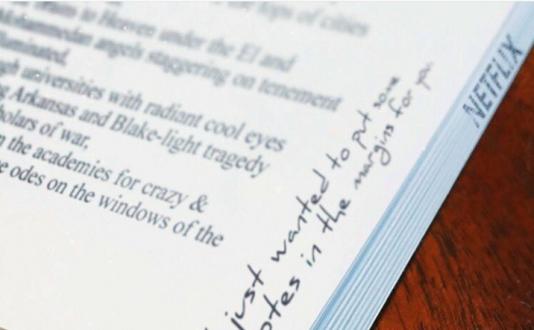 tops of cities
to Heaven under the El and
Mohammedan angels staggering on tenement
illuminated,
universities with radiant cool eyes
Arkansas and Blake-light tragedy
scholars of war,
the academies for crazy &
odes on the windows of the
just wanted to put some
notes in the margins for you.
NETFLIX